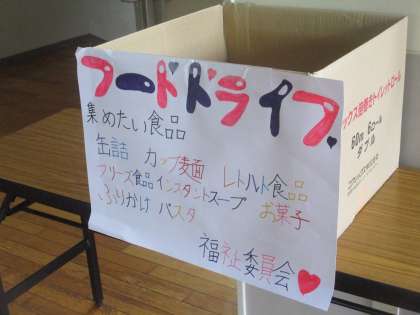 フードドライブ
集めたい食品
缶詰 カップ麺 レトルト食品
フリーズ食品 インスタントスープ お菓子
ふりかけ パスタ
福祉委員会
60m 6ロール
ダブル